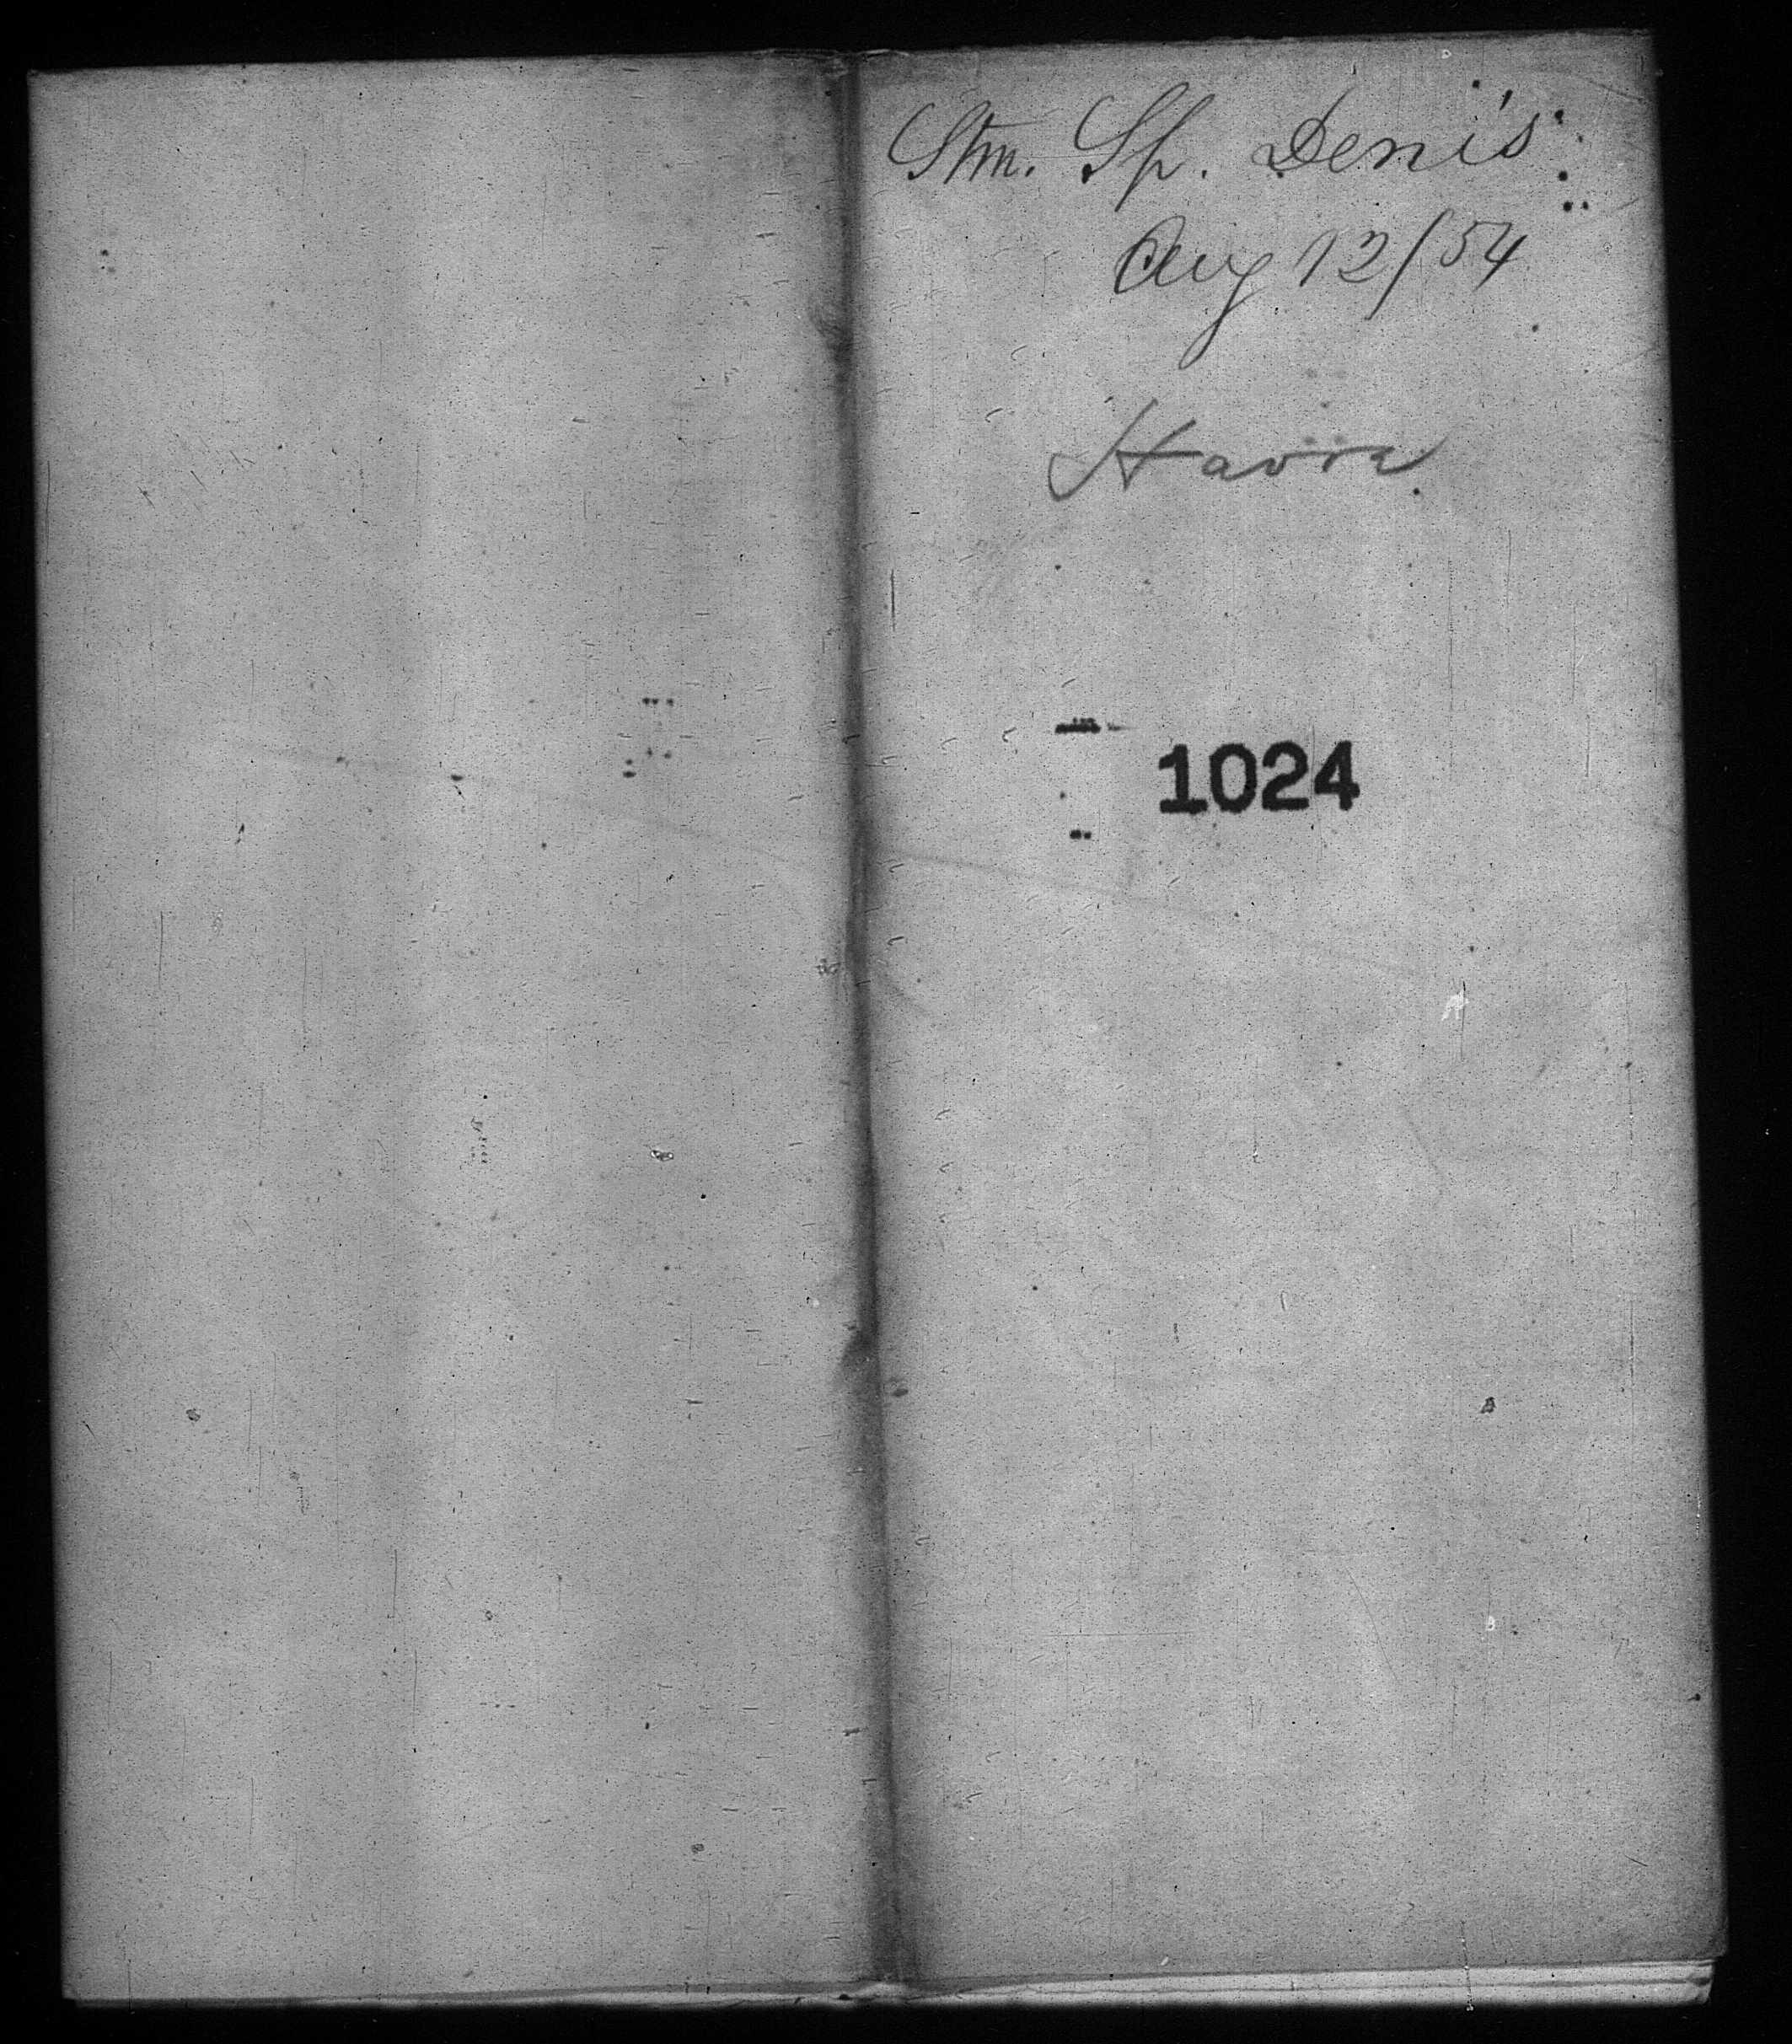 Stm. Sp. Denis
Aug 12/54
Havre
1024